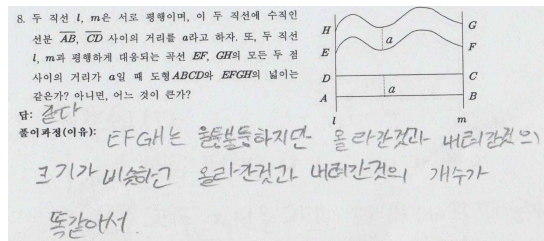 8. 두 직선 l, m은 서로 평행이며, 이 두 직선에 수직인
선분 AB, CD 사이의 거리를 a라고 하자. 또, 두 직선
l, m과 평행하게 대응되는 곡선 EF, GH의 모든 두 점
사이의 거리가 a일 때 도형ABCD와 EFGH의 넓이는
같은가? 아니면, 어느 것이 큰가?
답: 같다
풀이과정(이유): EFGH는 울퉁불퉁하지만 올라간것과 내려간것의
크기가 비슷하고 올라간것과 내려간것의 개수가
똑같아서.
H
G
E
a
F
D
C
A
a
B
l
m